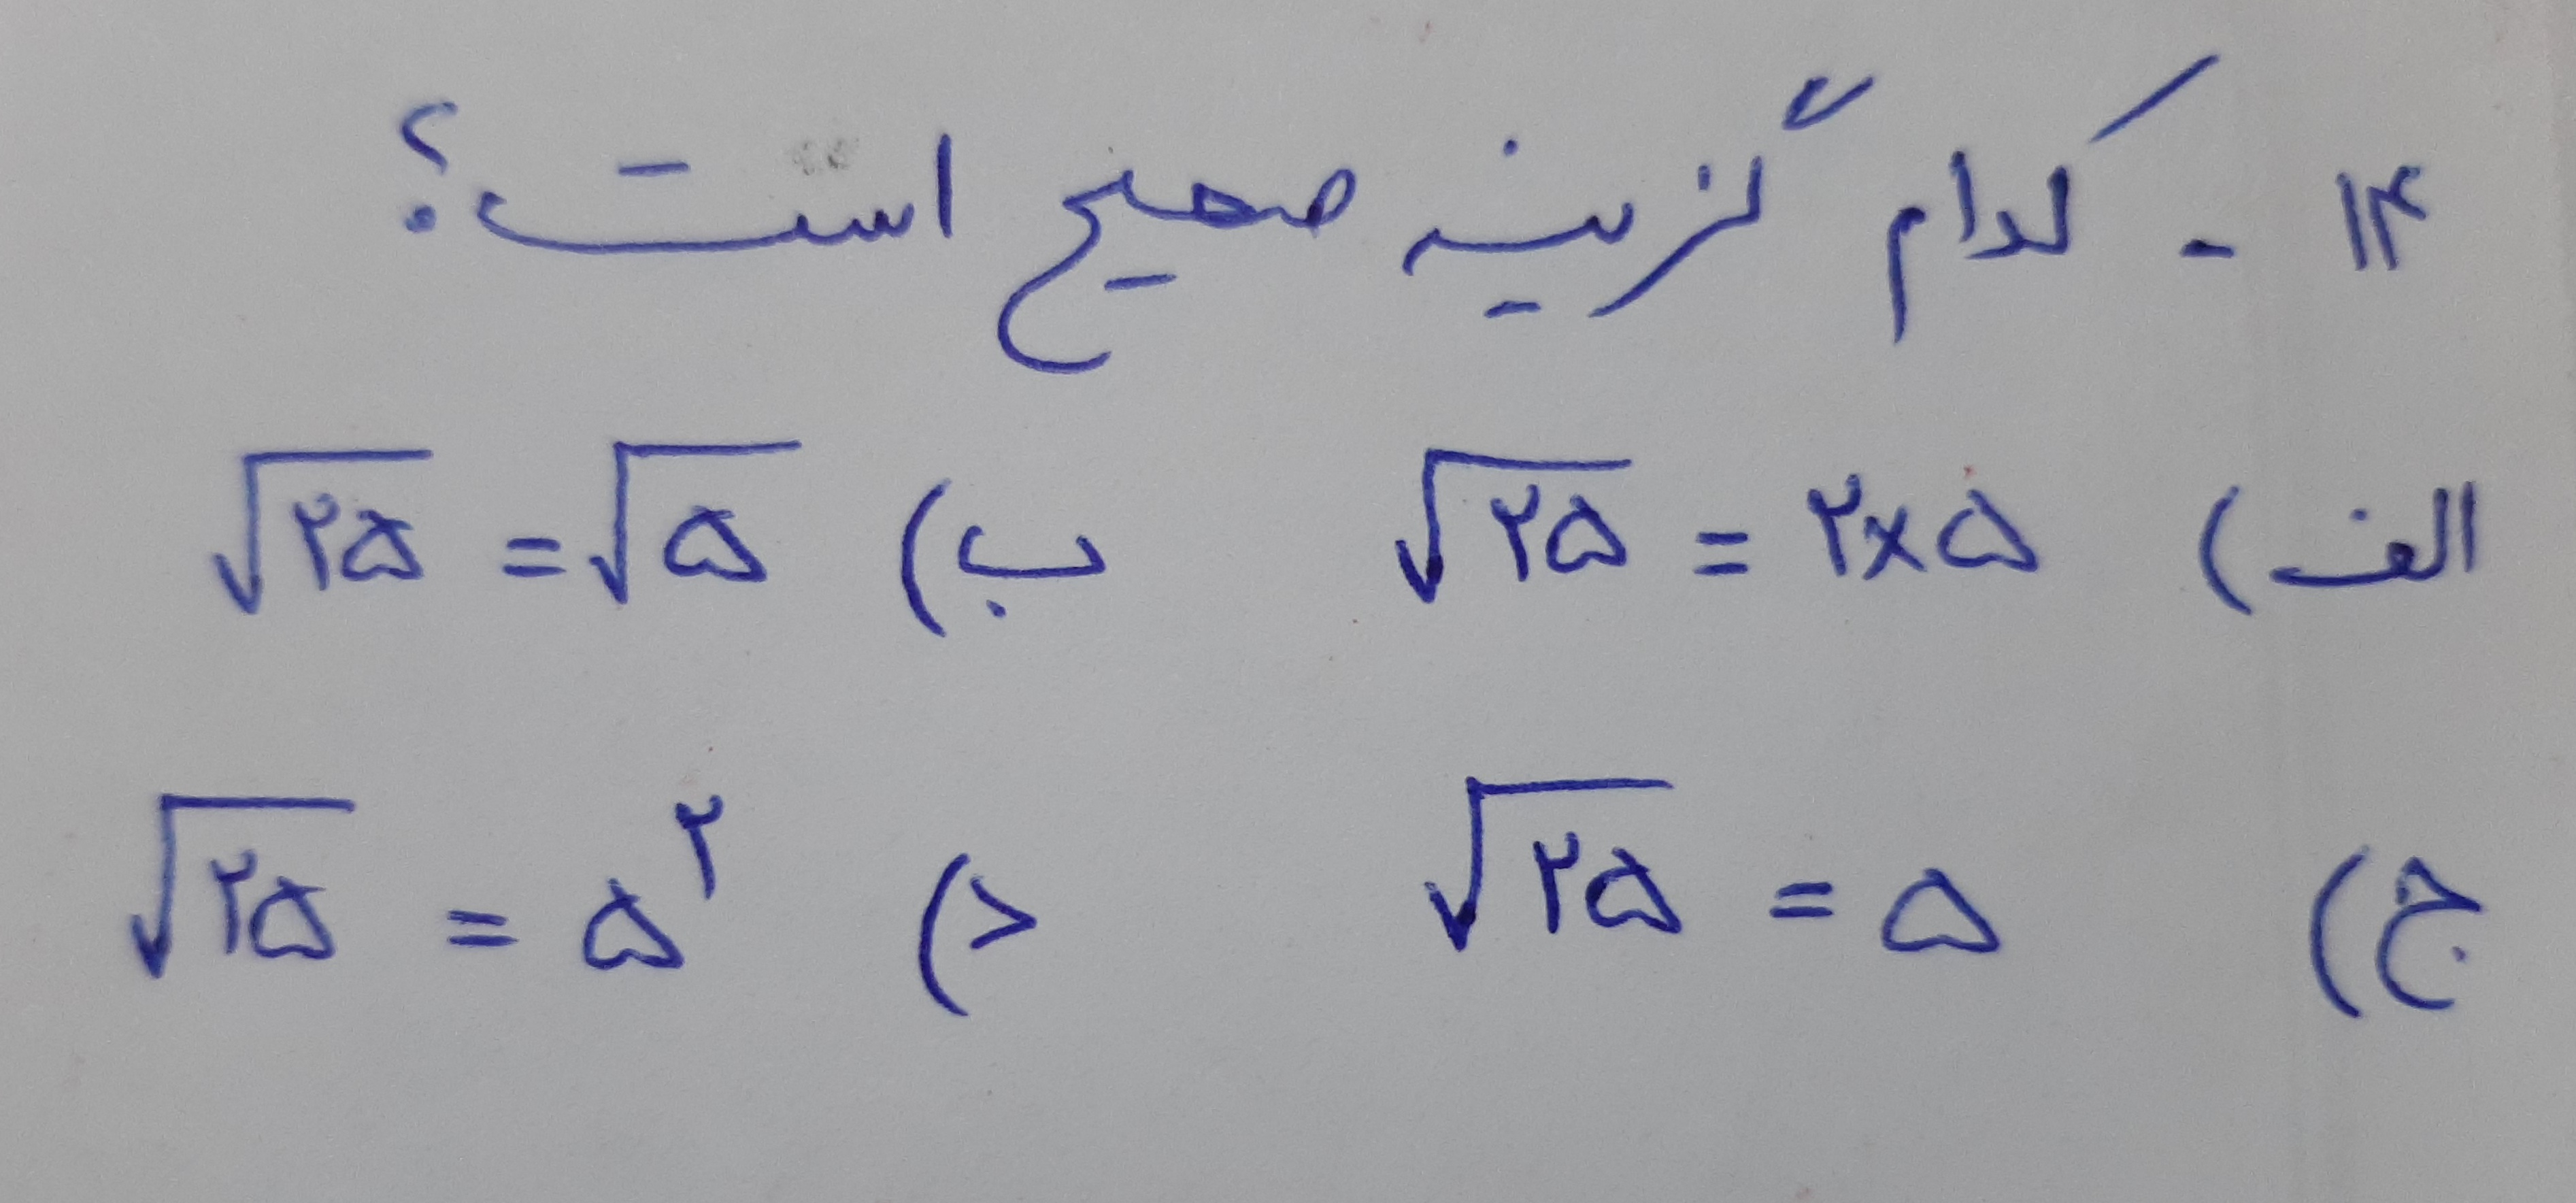 ۱۴ - کدام گزینه صحیح است؟
الف) √۲۵ = ۲×۵ ب) √۲۵ = √۵
ج) √۲۵ = ۵ د) √۲۵ = ۵^۲